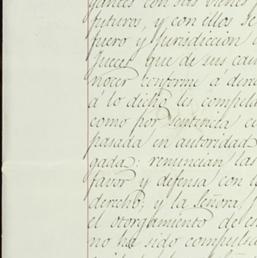 gantes con sus bienes p
futuros, y con ellos se
fuero y jurisdiccion d
Jueces que de sus cau
nocer conforme á dere
á lo dicho les compela
como por sentencia co
pasada en autoridad
gada: renuncian las
favor y defensa con l
derecho; y la Señora,
el otorgamiento de es
no ha sido compulsa